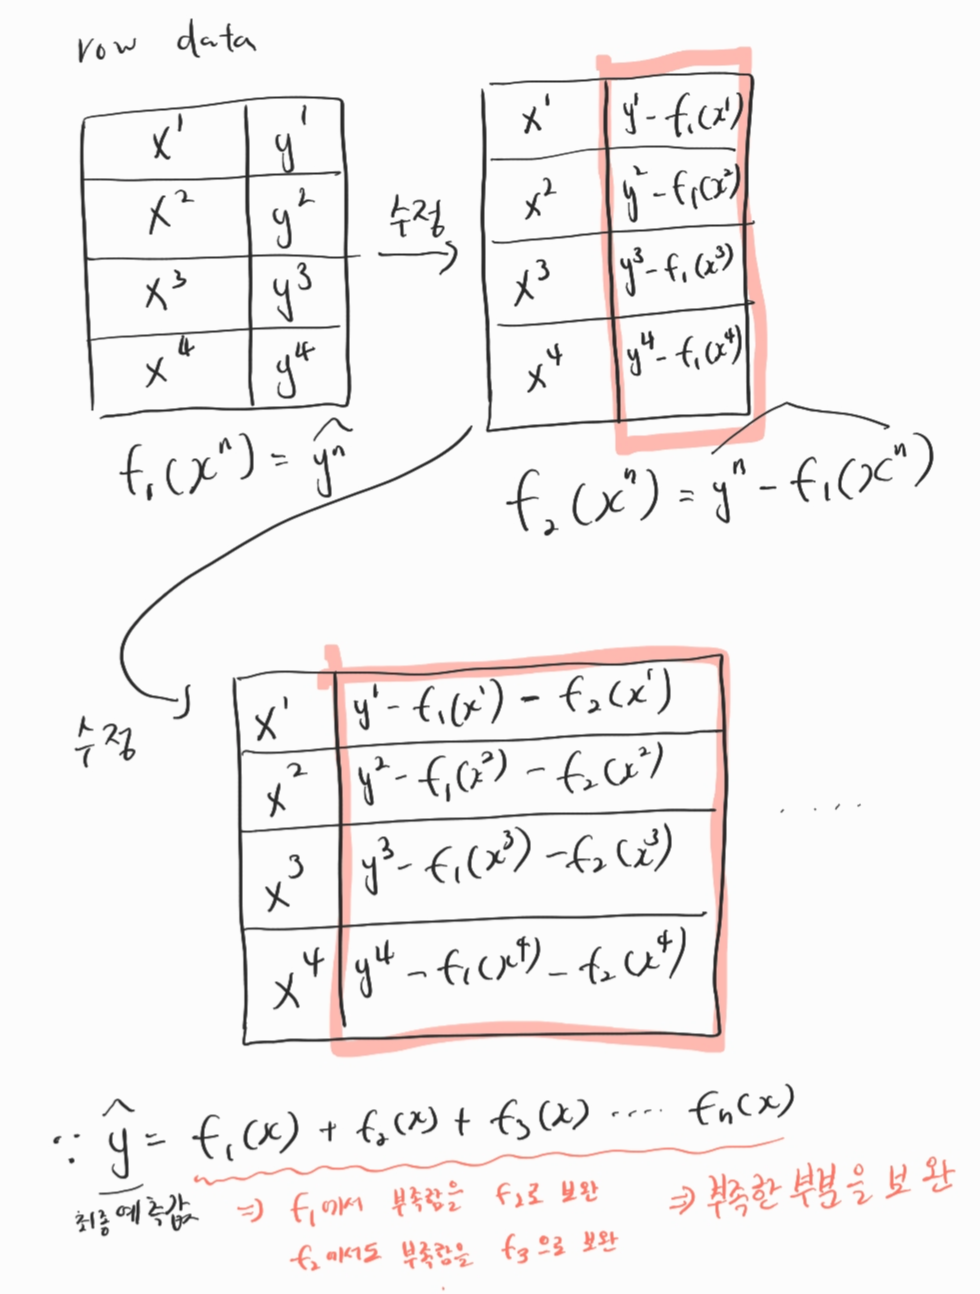 row data
x¹ y¹
x² y²
x³ y³
x⁴ y⁴
f₁(xⁿ) = ŷⁿ
수정
x¹ y¹ - f₁(x¹)
x² y² - f₁(x²)
x³ y³ - f₁(x³)
x⁴ y⁴ - f₁(x⁴)
f₂(xⁿ) = yⁿ - f₁(xⁿ)
수정
x¹ y¹ - f₁(x¹) - f₂(x¹)
x² y² - f₁(x²) - f₂(x²)
x³ y³ - f₁(x³) - f₂(x³)
x⁴ y⁴ - f₁(x⁴) - f₂(x⁴)
.....
∵ ŷ = f₁(x) + f₂(x) + f₃(x) ..... fₙ(x)
최종예측값
⇒ f₁에서 부족함을 f₂로 보완
f₂에서도 부족함을 f₃으로 보완
⇒ 부족한 부분을 보완